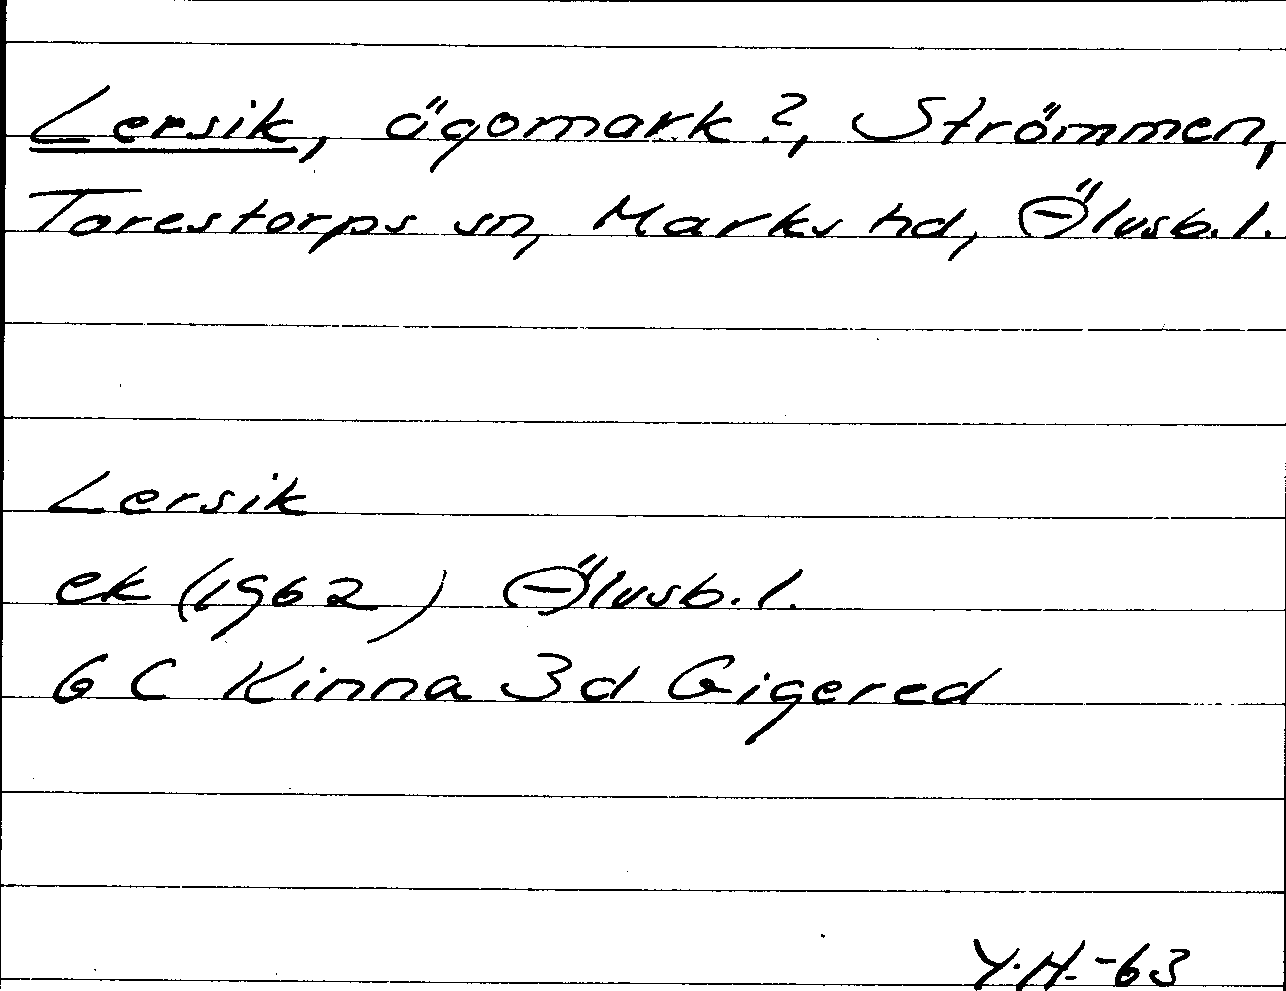 Lersik, ägomark?, Strömmen,
Torestorps sn, Marks hd, Älvsb. l.
Lersik
ek (1962) Älvsb. l.
6 C Kinna 3d Gigered
Y.H. -63